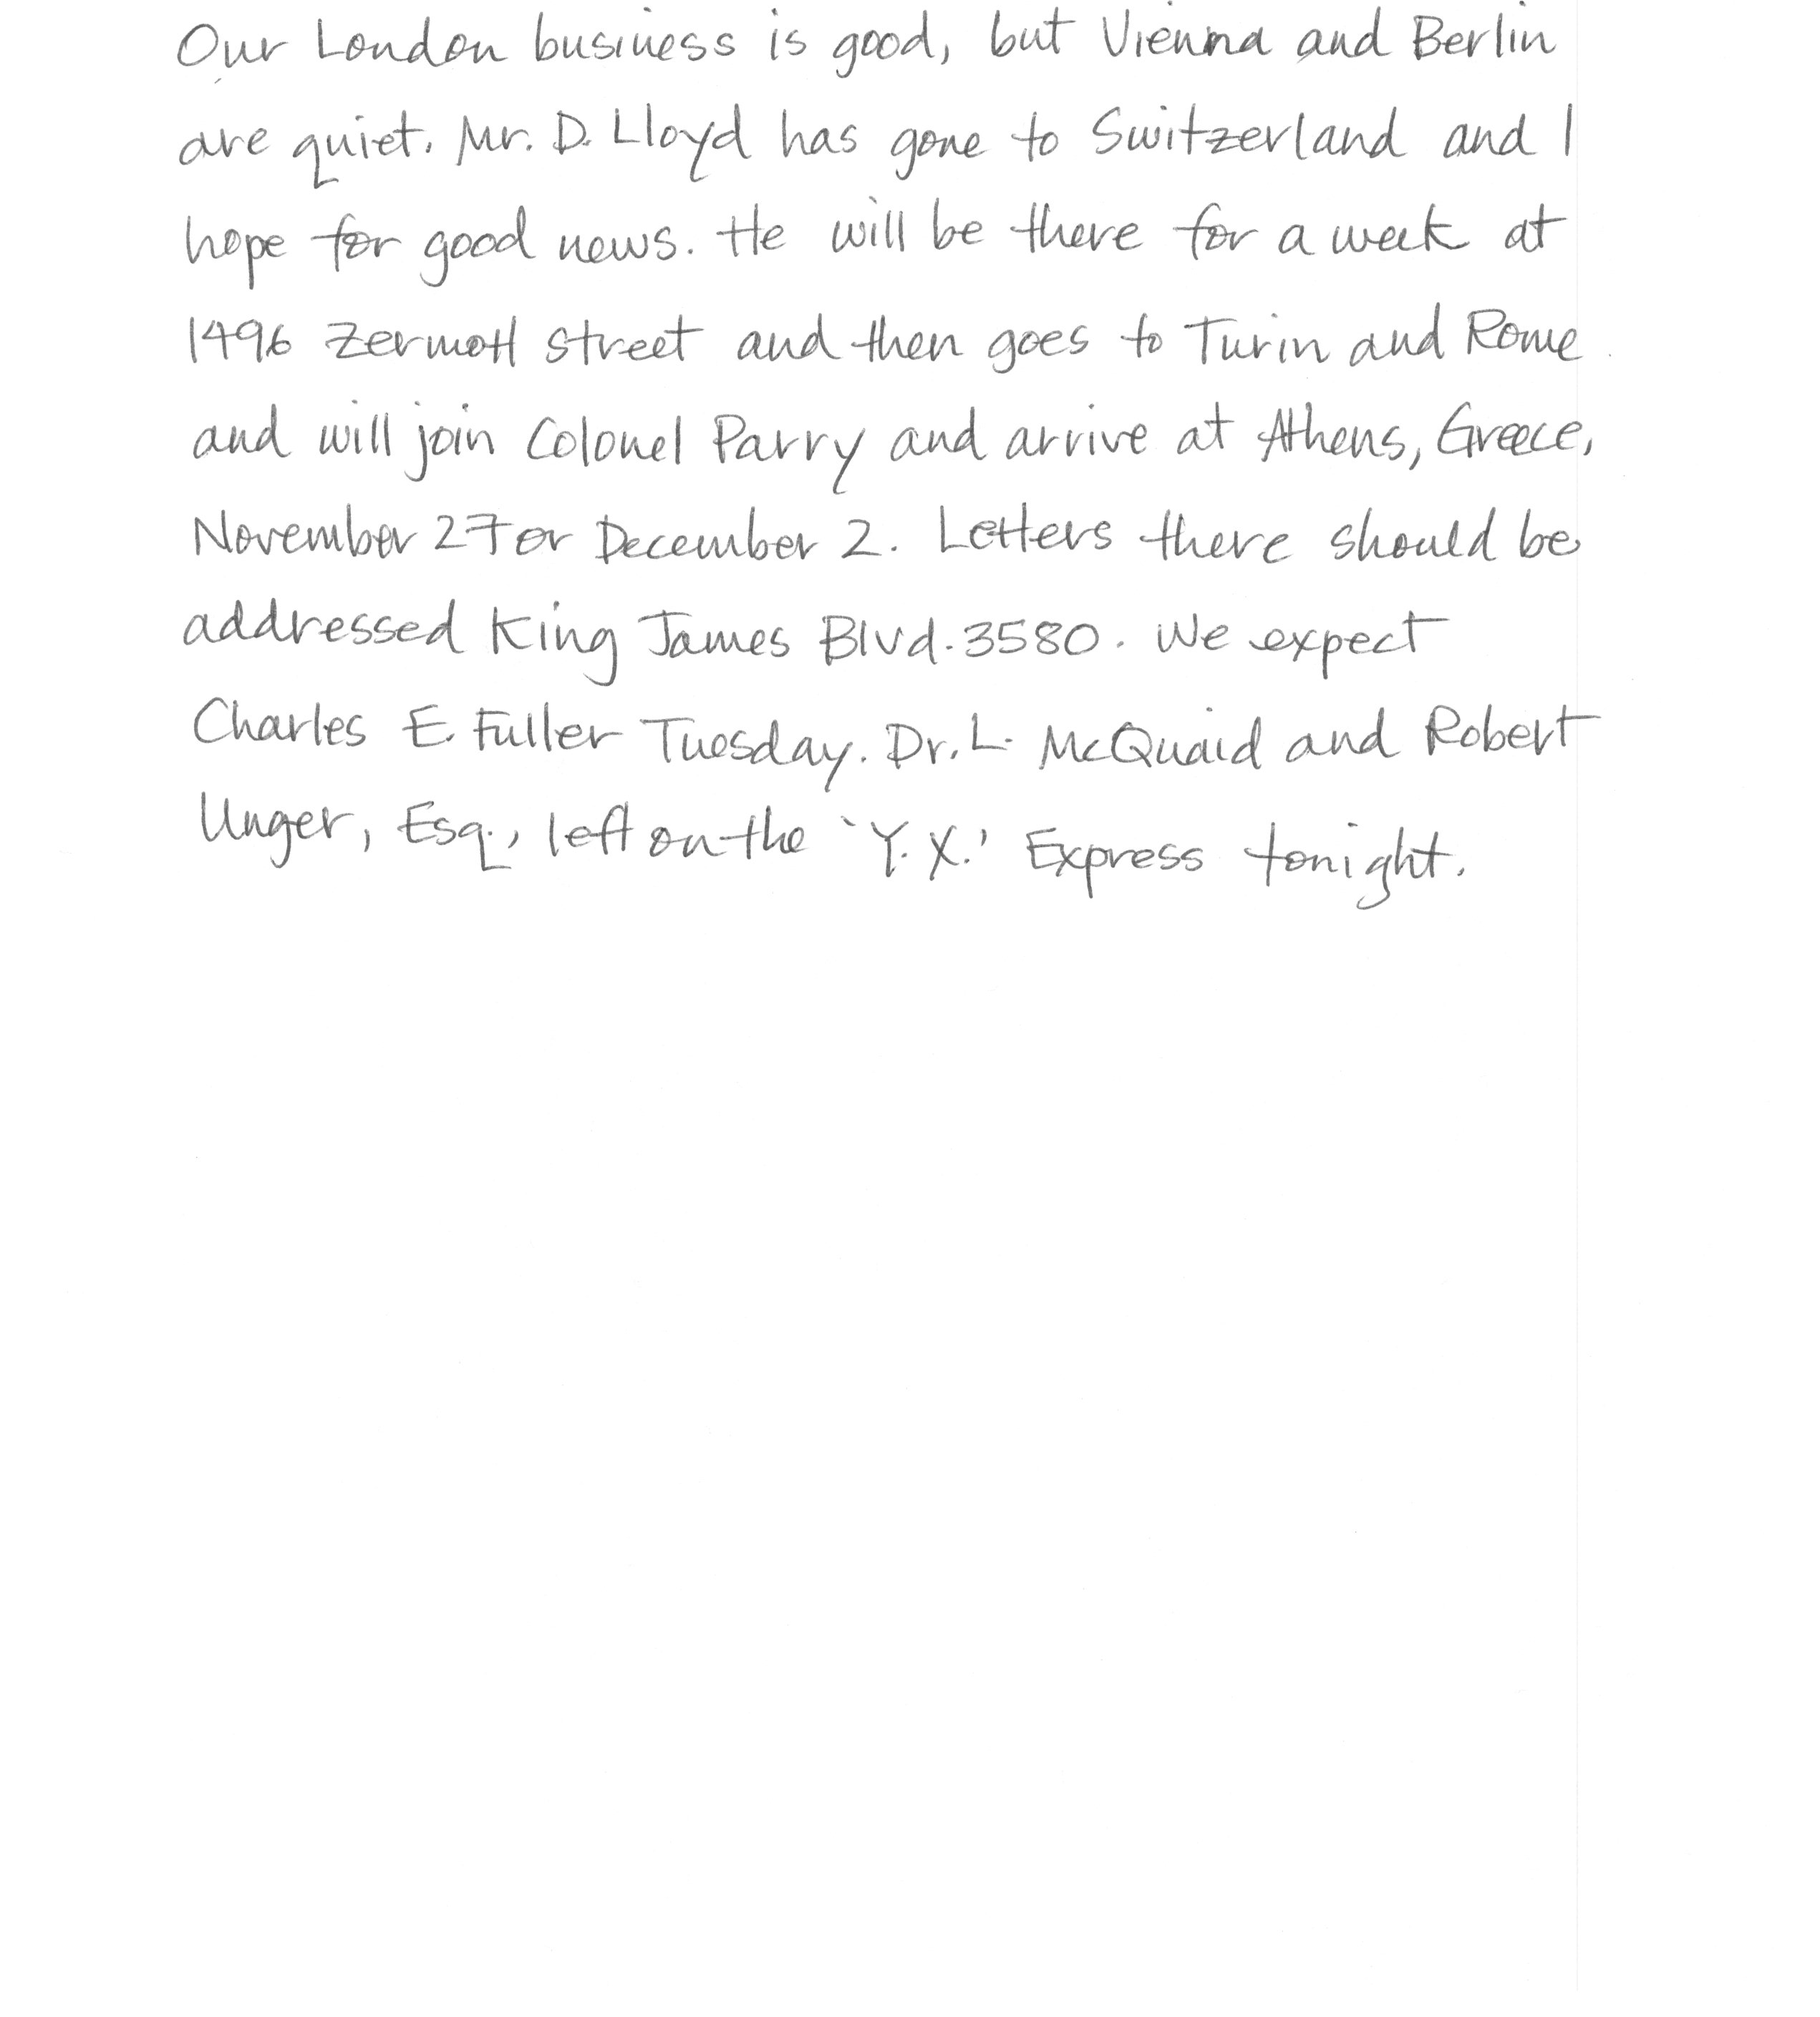 Our London business is good, but Vienna and Berlin
are quiet. Mr. D. Lloyd has gone to Switzerland and I
hope for good news. He will be there for a week at
1496 Zermott street and then goes to Turin and Rome
and will join Colonel Parry and arrive at Athens, Greece,
November 27 or December 2. Letters there should be
addressed King James Blvd. 3580. We expect
Charles E. Fuller Tuesday. Dr. L. McQuaid and Robert
Unger, Esq., left on the 'Y. X.' Express tonight.